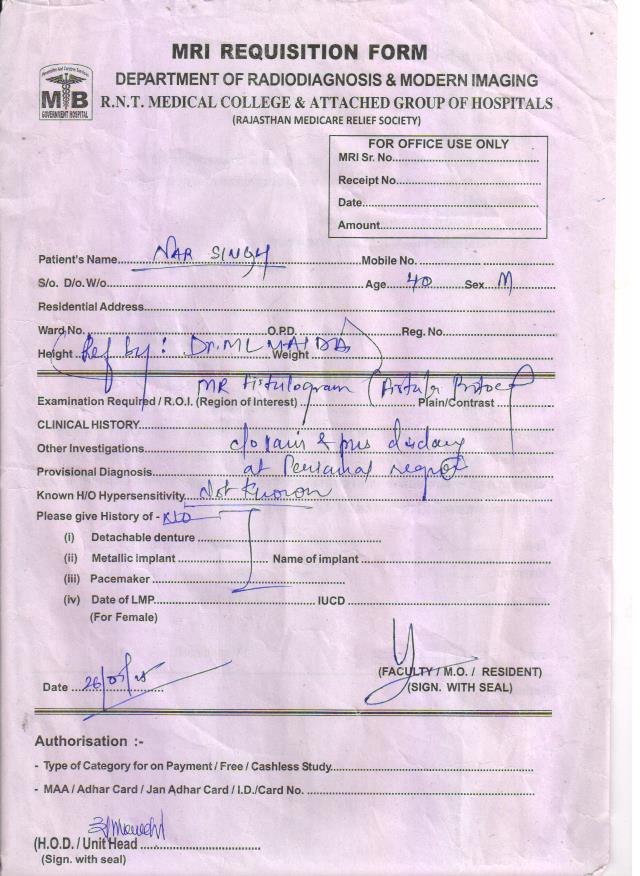 MRI REQUISITION FORM
DEPARTMENT OF RADIODIAGNOSIS & MODERN IMAGING
R.N.T. MEDICAL COLLEGE & ATTACHED GROUP OF HOSPITALS
(RAJASTHAN MEDICARE RELIEF SOCIETY)
MB
GOVERNMENT HOSPITAL
FOR OFFICE USE ONLY
MRI Sr. No.
Receipt No.
Date
Amount
Patient's Name NAR SINGH Mobile No.
S/o. D/o. W/o Age 40 Sex M
Residential Address
Ward No. O.P.D. Reg. No.
Height Ref by: Dr. ML Weight
MR Fistulogram (Fistula Protocol)
Examination Required / R.O.I. (Region of Interest) Plain/Contrast
CLINICAL HISTORY
Other Investigations c/o pain & pus
Provisional Diagnosis at Perianal region
Known H/O Hypersensitivity Not Known
Please give History of - NO
(i) Detachable denture
(ii) Metallic implant Name of implant
(iii) Pacemaker
(iv) Date of LMP IUCD
(For Female)
(FACULTY / M.O. / RESIDENT)
Date 26/
(SIGN. WITH SEAL)
Authorisation :-
- Type of Category for on Payment / Free / Cashless Study
- MAA / Adhar Card / Jan Adhar Card / I.D./Card No.
(H.O.D. / Unit Head
(Sign. with seal)